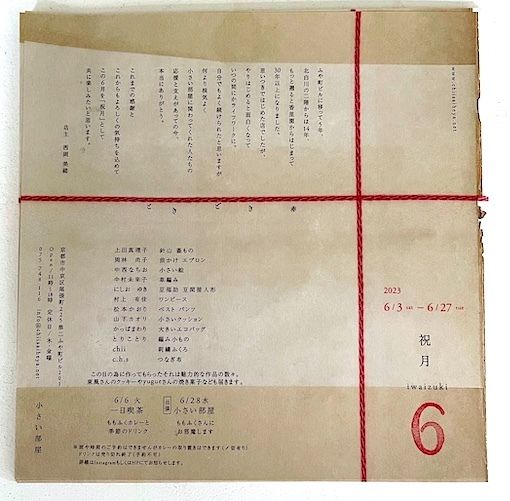 ふや町ビルに移って5年。
北白川の二階からは14年
もっと遡ると香里園からはじまって
30年以上になりました。
思いつきではじめた店でしたが、
やりはじめると面白くなって
いつの間にかライフワークに。
自分でもよく続けられたと思いますが
何より根気よく
小さい部屋に関わってくれた人たちの
応援と支えがあってのや。
本当にありがとう。
これまでの感謝と
これからもよろしくの気持ちを込めて
この6月を「祝月」として
共に楽しみたいと思います。
店主 西岡 美緒
www.chiisaiheya.net
2023
6/3 sat – 6/27 tue
祝月
iwaizuki
6
上田真理子 針山 蓋もの
岡林 尚子 前かけ エプロン
中西なちお 小さい絵
中村未来子 草編み
にしお ゆき 豆福助 豆閻魔人形
村上 有佳 ワンピース
松本かおり ベスト パンツ
山下ホオリ 小さいクッション
かっぱまわり 大きいエコバッグ
とりことり 編み小もの
chii 刺繍ふくろ
c.h.s つなぎ布
この日の為に作ってもらったそれは魅力的な作品の数々。
東風さんのクッキーやyugueさんの焼き菓子なども届きます。
6/6 火
一日喫茶
ももふくカレーと
季節のドリンク
出張
6/28 水
小さい部屋
ももふくさんに
お邪魔します
ドリンクは売り切れ終了(予約不可)
詳細はInstagramもしくはHPにてお知らせします。
小さい部屋
京都市中京区尾張町225 第二ふや町ビル203
Open/11時~18時 定休日/木・金曜
info@chiisaiheya.net